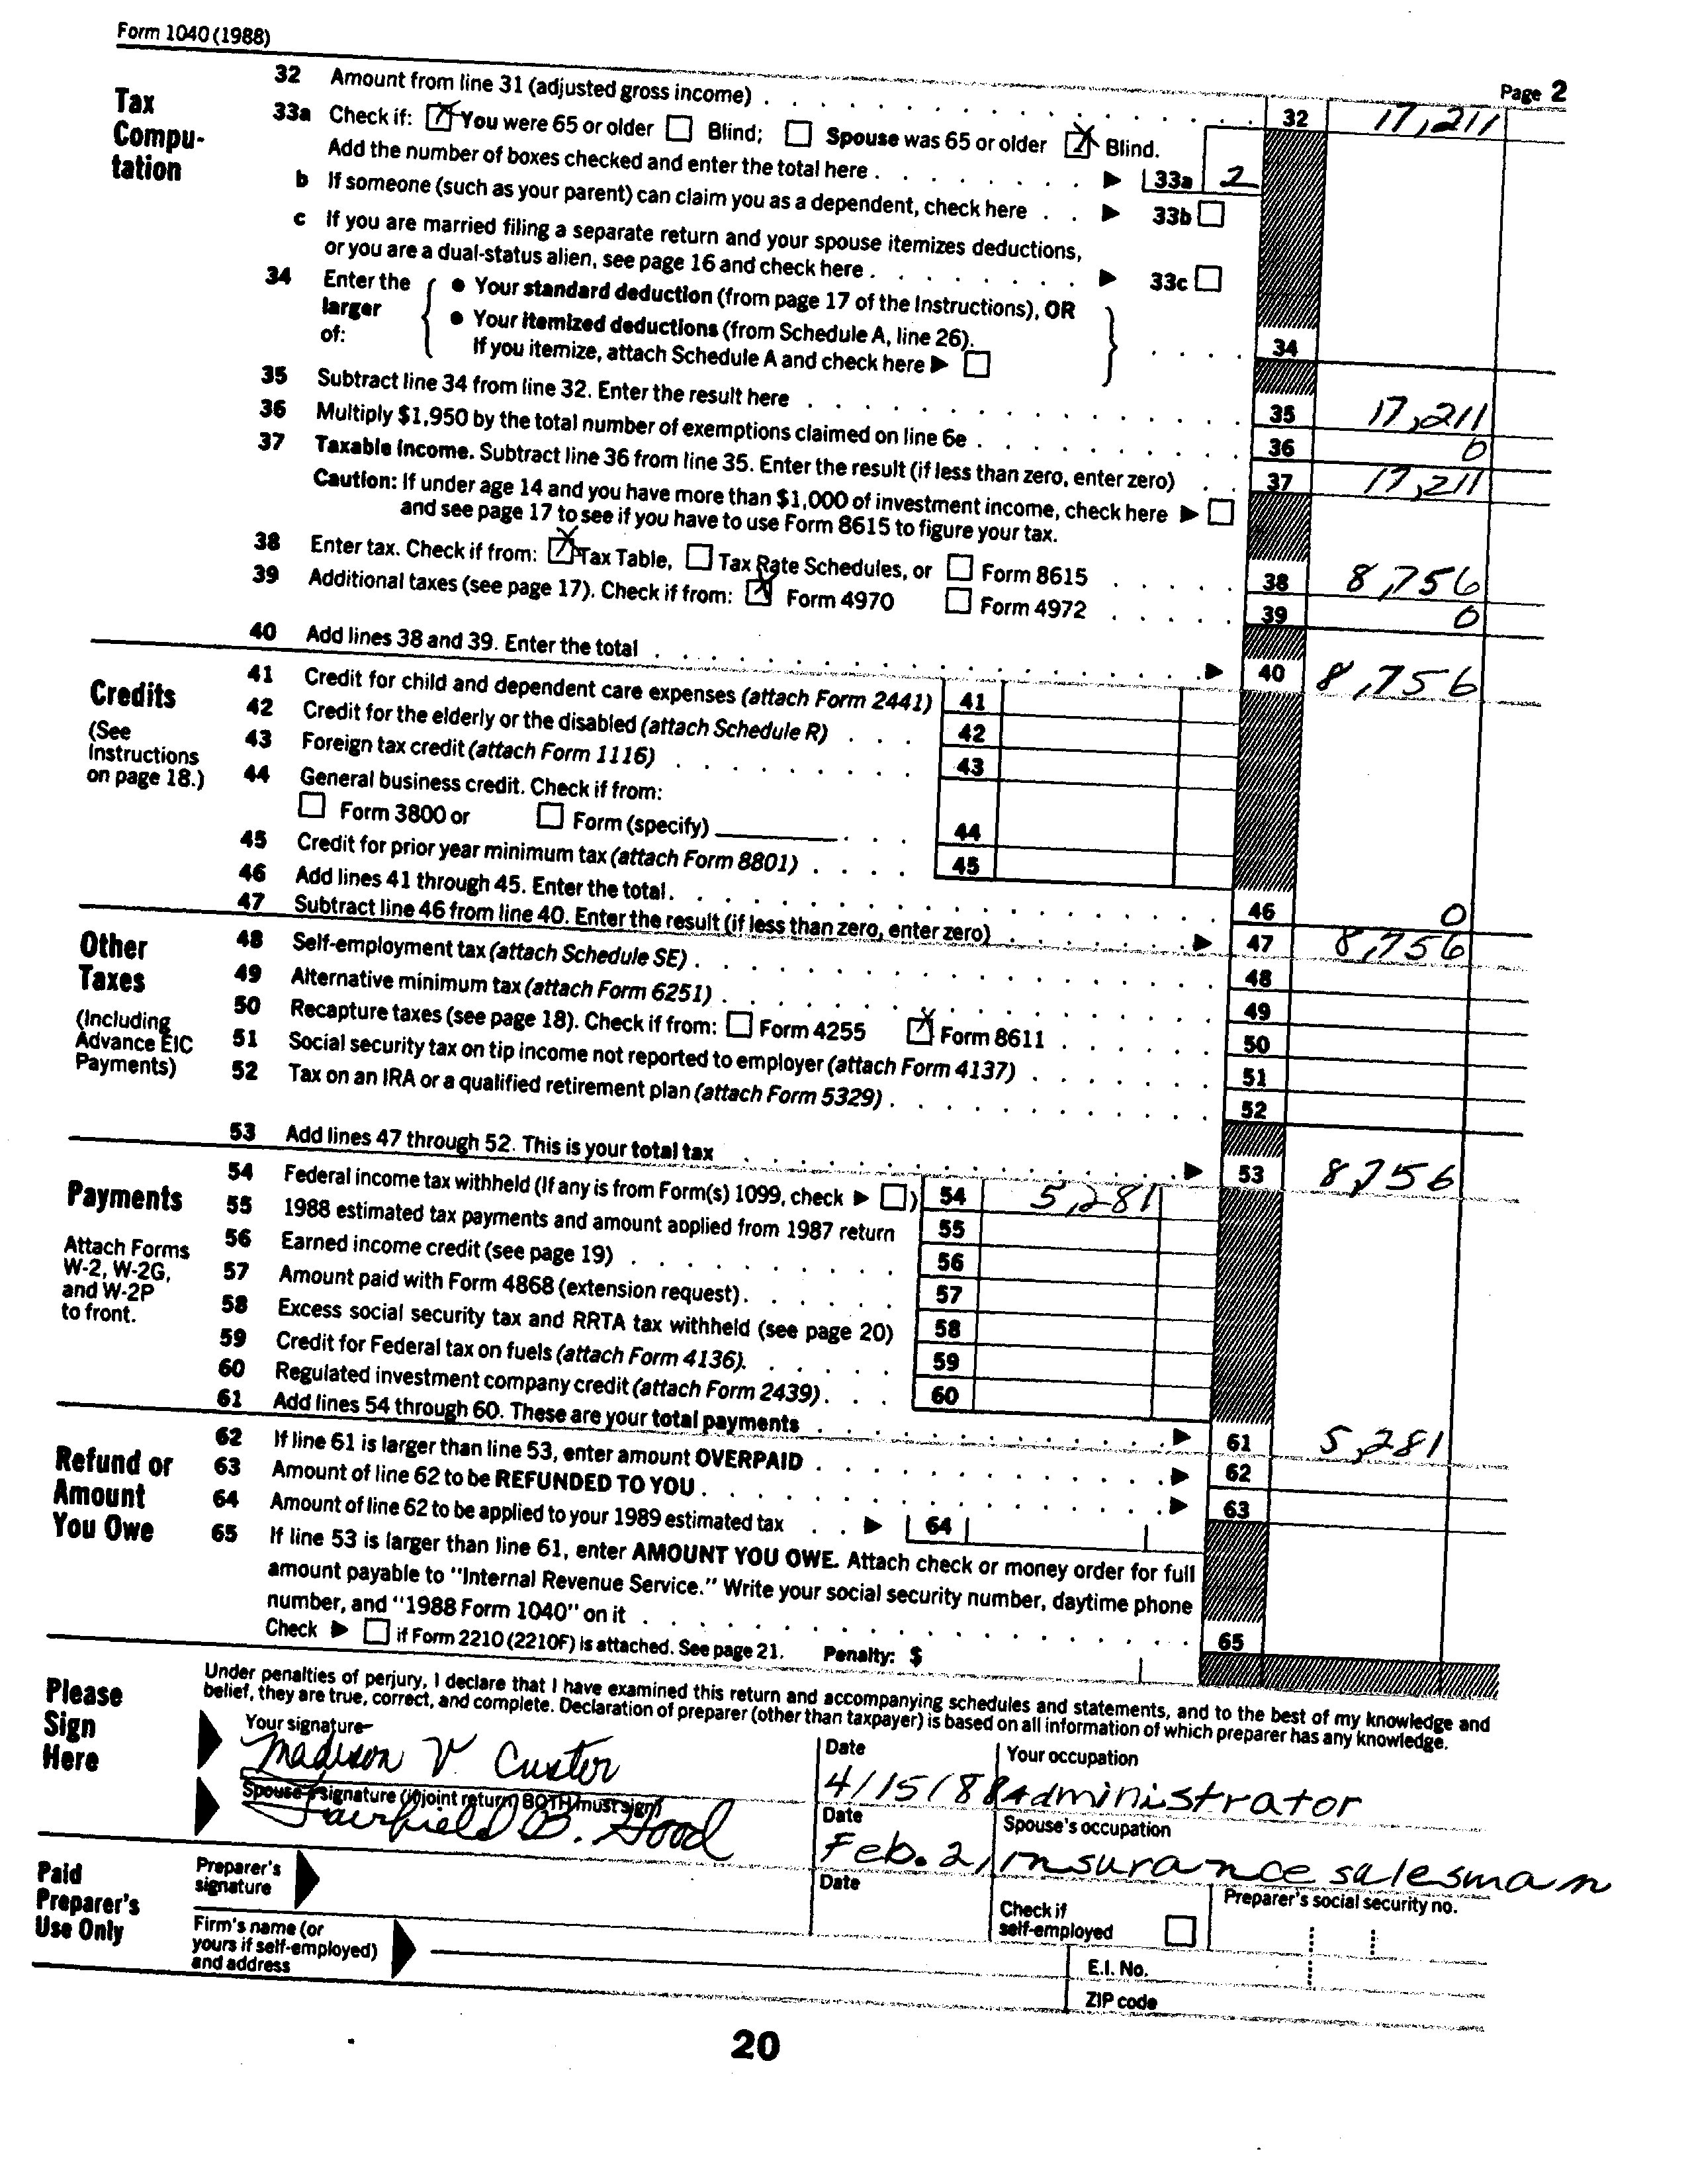 Form 1040 (1988)
Page 2
Tax Compu-tation
32 Amount from line 31 (adjusted gross income) . . . . 32 17,211
33a Check if: [X] You were 65 or older [ ] Blind; [ ] Spouse was 65 or older [X] Blind.
Add the number of boxes checked and enter the total here . . . ▶ 33a 2
b If someone (such as your parent) can claim you as a dependent, check here . . ▶ 33b [ ]
c If you are married filing a separate return and your spouse itemizes deductions,
or you are a dual-status alien, see page 16 and check here . . . ▶ 33c [ ]
34 Enter the larger of:
● Your standard deduction (from page 17 of the Instructions), OR
● Your itemized deductions (from Schedule A, line 26).
If you itemize, attach Schedule A and check here ▶ [ ] . . . . 34
35 Subtract line 34 from line 32. Enter the result here . . . . 35 17,211
36 Multiply $1,950 by the total number of exemptions claimed on line 6e . . . . 36 0
37 Taxable income. Subtract line 36 from line 35. Enter the result (if less than zero, enter zero) . . 37 17,211
Caution: If under age 14 and you have more than $1,000 of investment income, check here ▶ [ ]
and see page 17 to see if you have to use Form 8615 to figure your tax.
38 Enter tax. Check if from: [X] Tax Table, [ ] Tax Rate Schedules, or [ ] Form 8615 . . . . 38 8,756
39 Additional taxes (see page 17). Check if from: [X] Form 4970 [ ] Form 4972 . . . . 39 0
40 Add lines 38 and 39. Enter the total . . . . ▶ 40 8,756
Credits
(See Instructions on page 18.)
41 Credit for child and dependent care expenses (attach Form 2441) 41
42 Credit for the elderly or the disabled (attach Schedule R) . . . 42
43 Foreign tax credit (attach Form 1116) . . . . 43
44 General business credit. Check if from:
[ ] Form 3800 or [ ] Form (specify) . . . 44
45 Credit for prior year minimum tax (attach Form 8801) . . . . 45
46 Add lines 41 through 45. Enter the total . . . . 46 0
47 Subtract line 46 from line 40. Enter the result (if less than zero, enter zero) . . . . ▶ 47 8,756
Other Taxes
(Including Advance EIC Payments)
48 Self-employment tax (attach Schedule SE) . . . . 48
49 Alternative minimum tax (attach Form 6251) . . . . 49
50 Recapture taxes (see page 18). Check if from: [ ] Form 4255 [X] Form 8611 . . . . 50
51 Social security tax on tip income not reported to employer (attach Form 4137) . . . . 51
52 Tax on an IRA or a qualified retirement plan (attach Form 5329) . . . . 52
53 Add lines 47 through 52. This is your total tax . . . . ▶ 53 8,756
Payments
Attach Forms W-2, W-2G, and W-2P to front.
54 Federal income tax withheld (If any is from Form(s) 1099, check ▶ [ ]) 54 5,281
55 1988 estimated tax payments and amount applied from 1987 return 55
56 Earned income credit (see page 19) . . . . 56
57 Amount paid with Form 4868 (extension request) . . . . 57
58 Excess social security tax and RRTA tax withheld (see page 20) 58
59 Credit for Federal tax on fuels (attach Form 4136) . . . . 59
60 Regulated investment company credit (attach Form 2439) . . . 60
61 Add lines 54 through 60. These are your total payments . . . . ▶ 61 5,281
Refund or Amount You Owe
62 If line 61 is larger than line 53, enter amount OVERPAID . . . . ▶ 62
63 Amount of line 62 to be REFUNDED TO YOU . . . . ▶ 63
64 Amount of line 62 to be applied to your 1989 estimated tax . . ▶ 64
65 If line 53 is larger than line 61, enter AMOUNT YOU OWE. Attach check or money order for full
amount payable to "Internal Revenue Service." Write your social security number, daytime phone
number, and "1988 Form 1040" on it . . . . 65
Check ▶ [ ] if Form 2210 (2210F) is attached. See page 21. Penalty: $
Please Sign Here
Under penalties of perjury, I declare that I have examined this return and accompanying schedules and statements, and to the best of my knowledge and
belief, they are true, correct, and complete. Declaration of preparer (other than taxpayer) is based on all information of which preparer has any knowledge.
Your signature Date Your occupation
Madison V. Custer 4/15/88 Administrator
Spouse's signature (if joint return, BOTH must sign) Date Spouse's occupation
Fairfield B. Good Feb. 2, insurance salesman
Paid Preparer's Use Only
Preparer's signature Date Check if self-employed [ ] Preparer's social security no.
Firm's name (or yours if self-employed) and address
E.I. No.
ZIP code
20